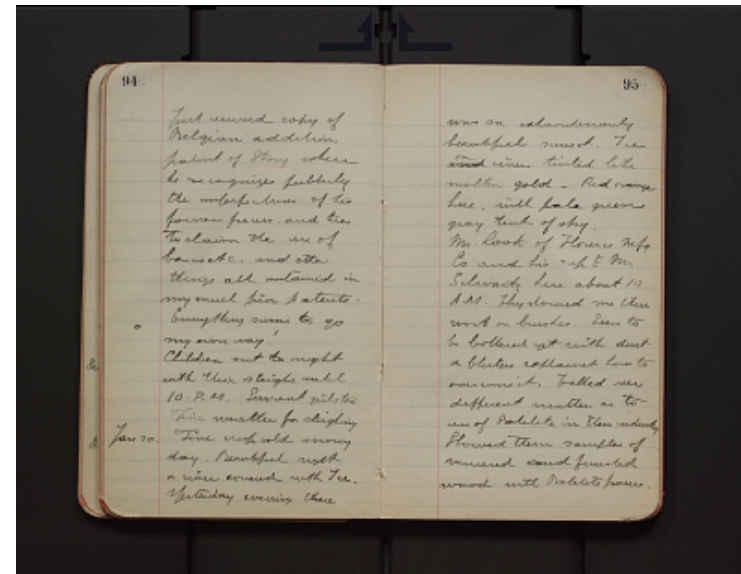 94
Just received copy of
Belgian addition
patent of Story where
he recognizes publicly
the imperfections of his
former process. and tries
to claim the use of
bases etc. and other
things all contained in
my much prior patents.
Everything seems to go
my own way!
Children out to night
with their sleighs until
10 P.M. Servant girls too
Fine weather for sleighing
Jan 20. Fine crisp cold snowy
day. Beautiful night
river covered with Ice.
Yesterday evening there
95
was an extraordinarily
beautiful sunset. Ice
on river tinted like
molten gold - Red orange
hue. with pale green
gray tint of sky.
Mr. Cook of Florence Mfg
Co. and his rept Mr
here about 10
A.M. They showed me their
work on brushes. Seem to
be bothered yet with dust
& blisters explained how to
overcome it. Talked over
different matters as to
use of Bakelite in their industry
Showed them samples of
veneered and
wood with Bakelite process.